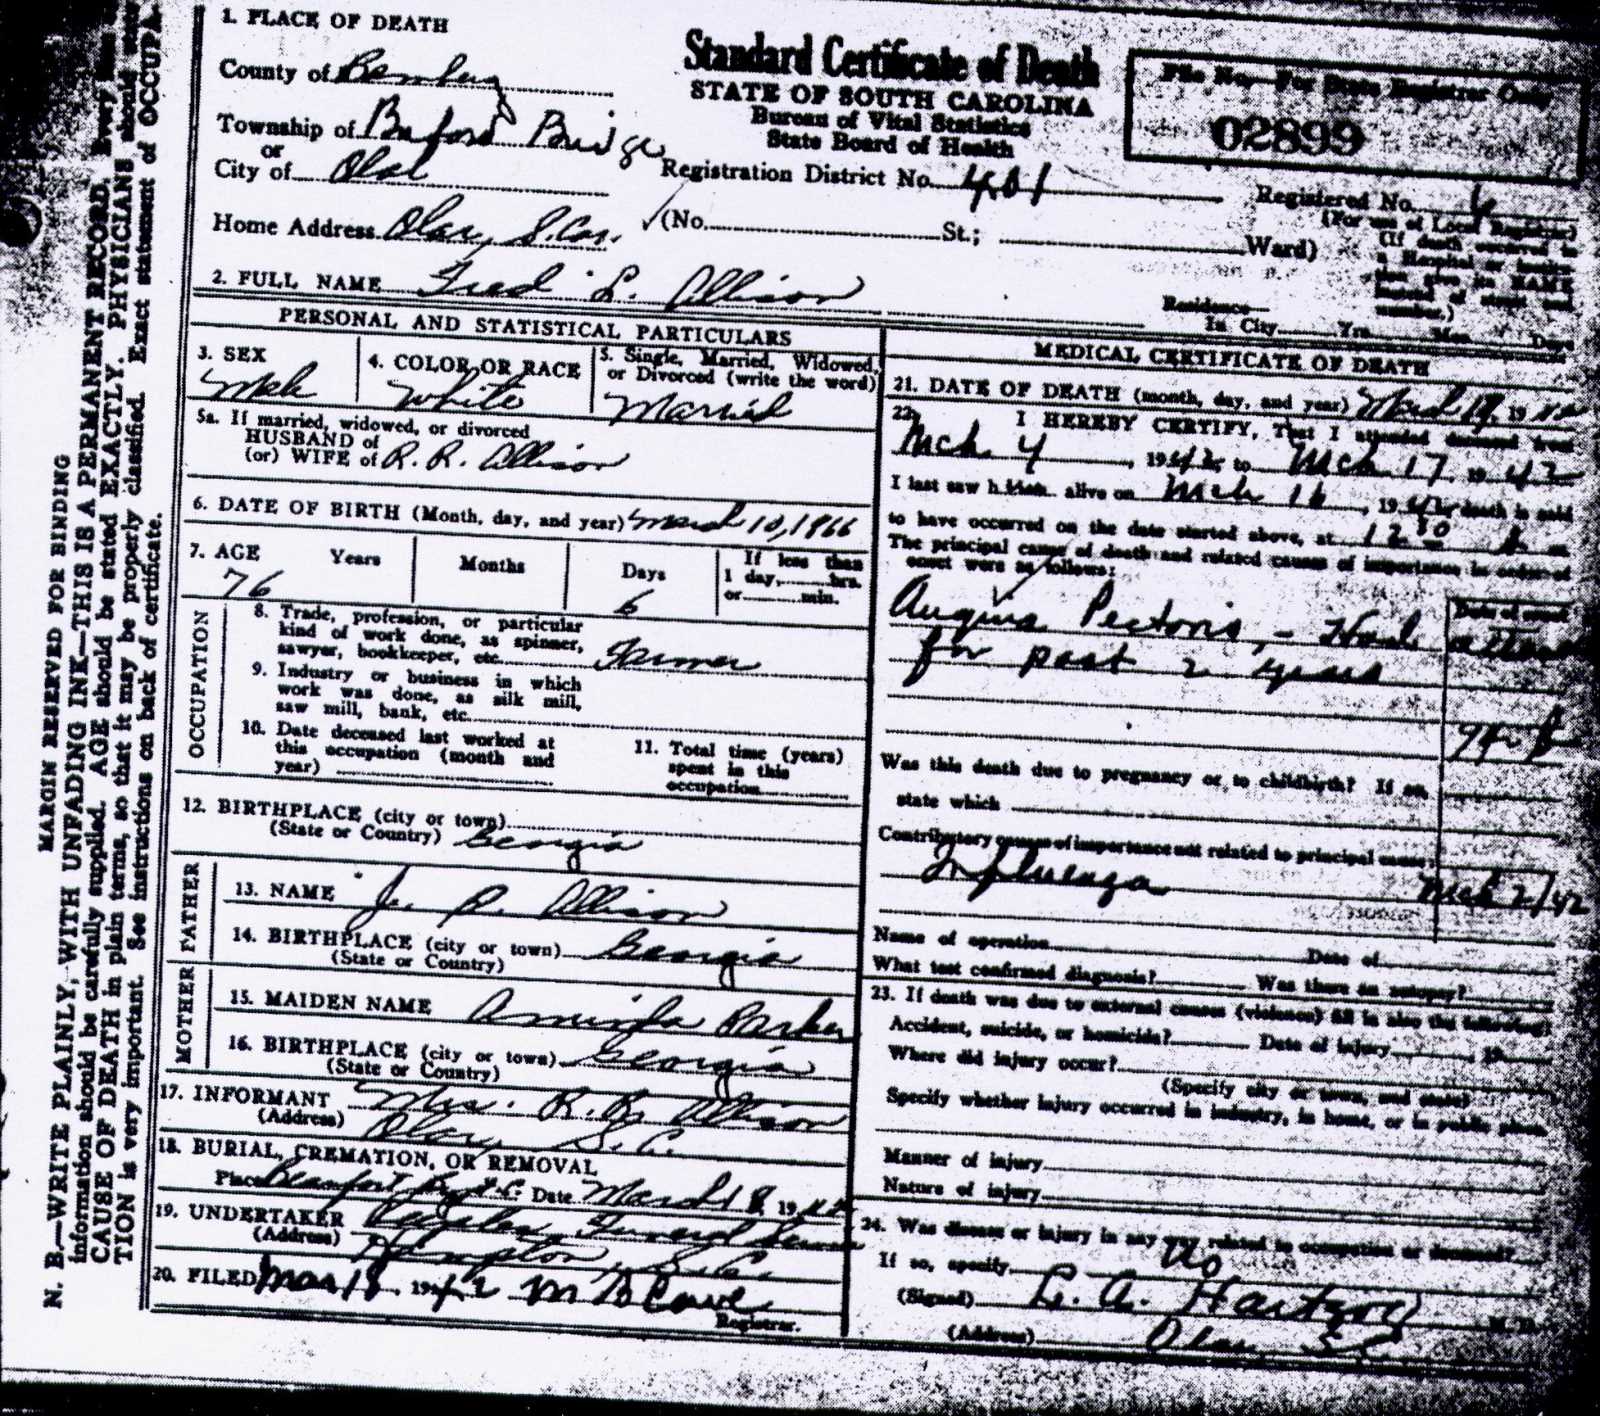 MARGIN RESERVED FOR BINDING
N. B.—WRITE PLAINLY, WITH UNFADING INK—THIS IS A PERMANENT RECORD. Every
information should be carefully supplied. AGE should be stated EXACTLY. PHYSICIANS should state
CAUSE OF DEATH in plain terms, so that it may be properly classified. Exact statement of OCCUPA-
TION is very important. See instructions on back of certificate.
Standard Certificate of Death
STATE OF SOUTH CAROLINA
Bureau of Vital Statistics
State Board of Health
File No.—For State Registrar Only
02899
1. PLACE OF DEATH
County of Bamberg
Township of Buford Bridge
or
City of Olar
Registration District No. 401
Registered No.
(For use of Local Registrar)
Home Address Olar, S. Car.
(No. St.; Ward)
(If death occurred in
a Hospital or
NAME
number.)
2. FULL NAME Fred L. Allison
Residence
In City Yrs. Mos. Days
PERSONAL AND STATISTICAL PARTICULARS
3. SEX
Male
4. COLOR OR RACE
White
5. Single, Married, Widowed,
or Divorced (write the word)
Married
5a. If married, widowed, or divorced
HUSBAND of
(or) WIFE of R. R. Allison
6. DATE OF BIRTH (Month, day, and year) March 10, 1866
7. AGE Years Months Days
76 6
If less than
1 day, hrs.
or min.
OCCUPATION
8. Trade, profession, or particular
kind of work done, as spinner,
sawyer, bookkeeper, etc. Farmer
9. Industry or business in which
work was done, as silk mill,
saw mill, bank, etc.
10. Date deceased last worked at
this occupation (month and
year)
11. Total time (years)
spent in this
occupation
12. BIRTHPLACE (city or town)
(State or Country) Georgia
FATHER
13. NAME J. P. Allison
14. BIRTHPLACE (city or town) Georgia
(State or Country)
MOTHER
15. MAIDEN NAME Parker
16. BIRTHPLACE (city or town) Georgia
(State or Country)
17. INFORMANT Mrs. R. R. Allison
(Address) Olar, S. C.
18. BURIAL, CREMATION, OR REMOVAL
Place Date March 18, 19
19. UNDERTAKER Funeral
(Address) Hampton, S. C.
20. FILED Mar 18, 1942
Registrar.
MEDICAL CERTIFICATE OF DEATH
21. DATE OF DEATH (month, day, and year) March 17, 19
22. I HEREBY CERTIFY, That I attended deceased from
Mch. 4, 1942, to Mch 17, 1942
I last saw him alive on Mch 16, 1942, death is said
to have occurred on the date stated above, at 12 m.
The principal cause of death and related causes of importance in order of
onset were as follows:
Date of onset
Angina Pectoris, – Had
for past 2 years
Was this death due to pregnancy or to childbirth? If so,
state which
Contributory causes of importance not related to principal cause:
Influenza Mch 2/42
Name of operation Date of
What test confirmed diagnosis? Was there an autopsy?
23. If death was due to external causes (violence) fill in also the following:
Accident, suicide, or homicide? Date of injury , 19
Where did injury occur?
(Specify city or town, and state)
Specify whether injury occurred in industry, in home, or in public place.
Manner of injury
Nature of injury
24. Was disease or injury in any way related to occupation of deceased?
No
If so, specify
(Signed) L. A. Hartzog M. D.
(Address) Olar, S C